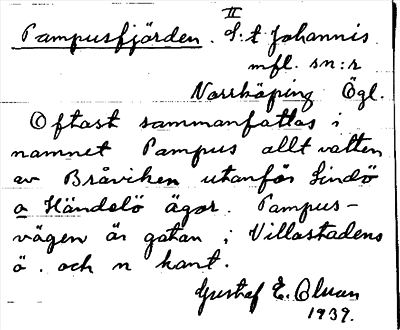 II
Pampusfjärden. S:t Johannis
mfl. sn:r
Norrköping Ögl.
Oftast sammanfattas i
namnet Pampus allt vatten
av Bråviken utanför Lindö
o Händelö ägor. Pampus-
vägen är gatan i Villastadens
ö. och n kant.
Gustaf E. Olsson
1939.